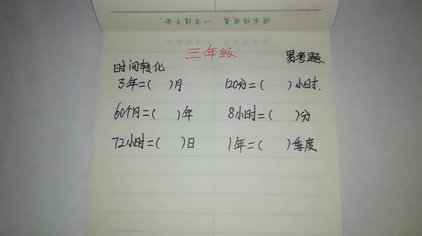 三年级
易考题
时间转化
3年=( )月 120分=( )小时.
60个月=( )年 8小时=( )分
72小时=( )日 1年=( )季度